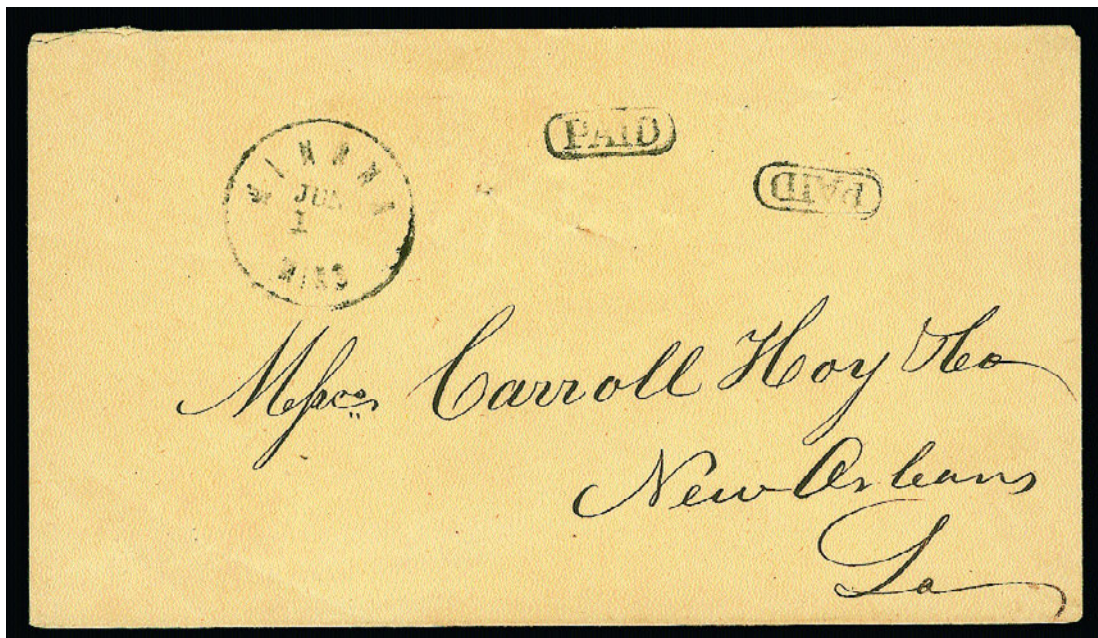 WINONA
JUN
1
MISS
PAID
PAID
Messrs Carroll Hoy & Co
New Orleans
La